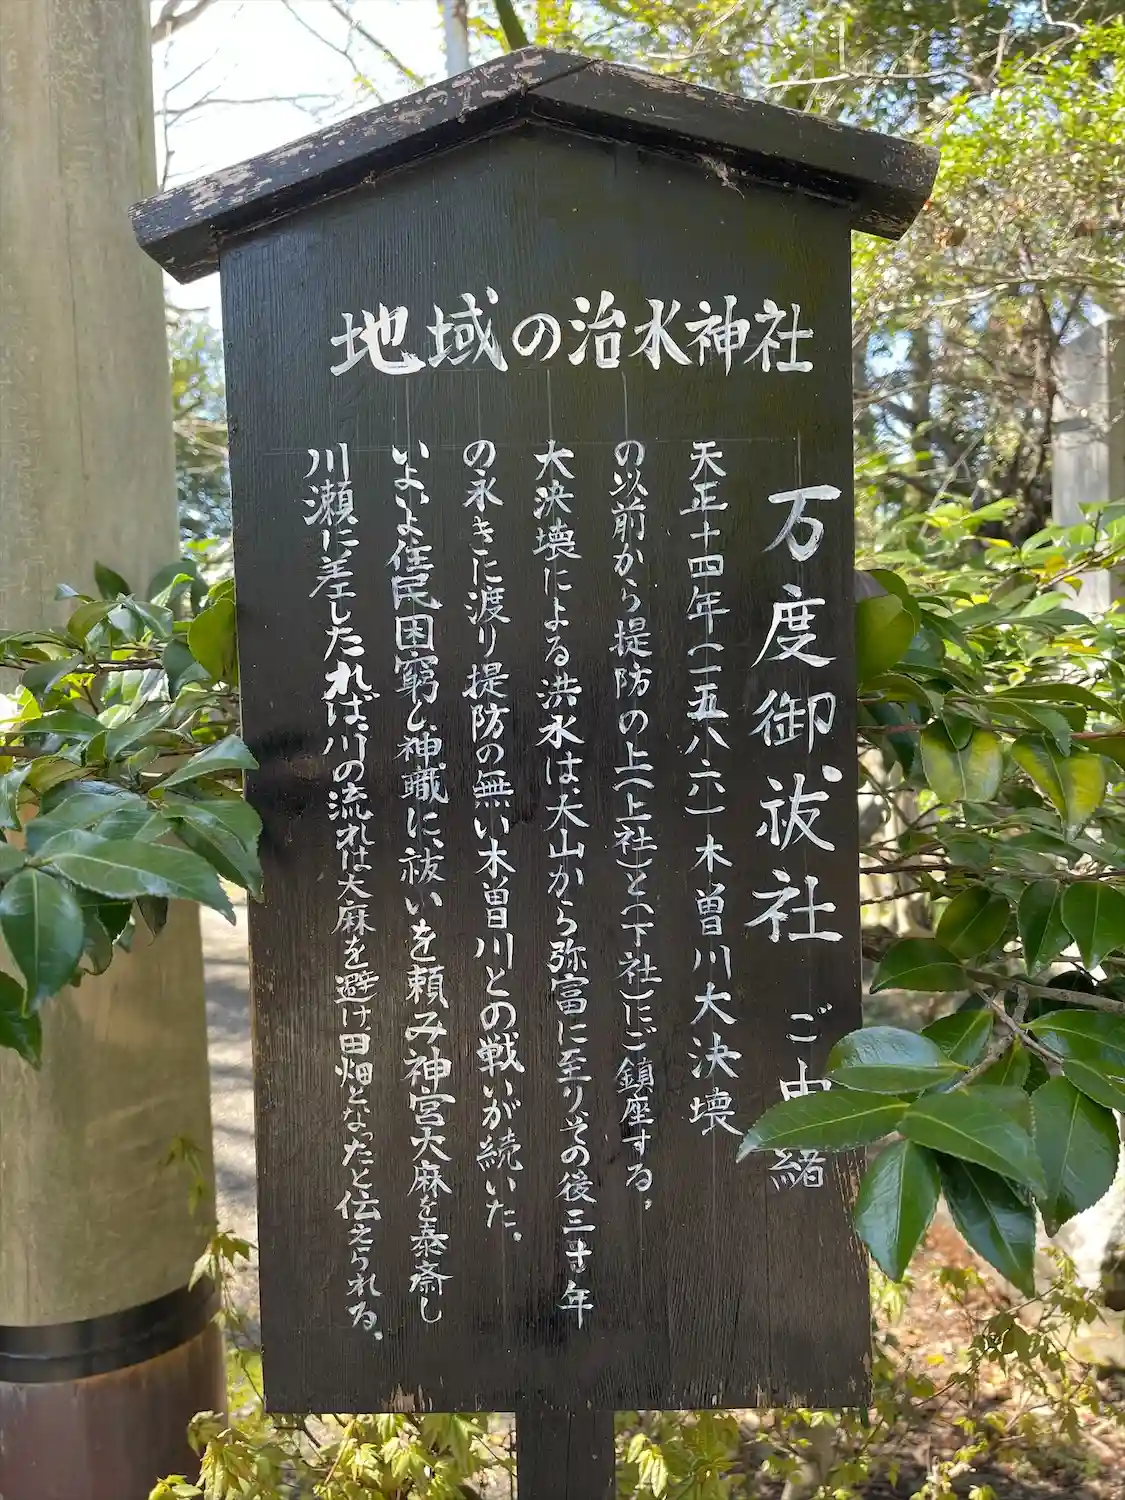 地域の治水神社
万度御祓社 ご由緒
天正十四年(一五八六)木曽川大決壊
の以前から堤防の上(上社)と(下社)にご鎮座する。
大決壊による洪水は、犬山から弥富に至りその後三十年
の永きに渡り堤防の無い木曽川との戦いが続いた。
いよいよ住民困窮し、神職に、祓いを頼み神宮大麻を奉斎し
川瀬に差したれば、川の流れは大麻を避け田畑となったと伝えられる。